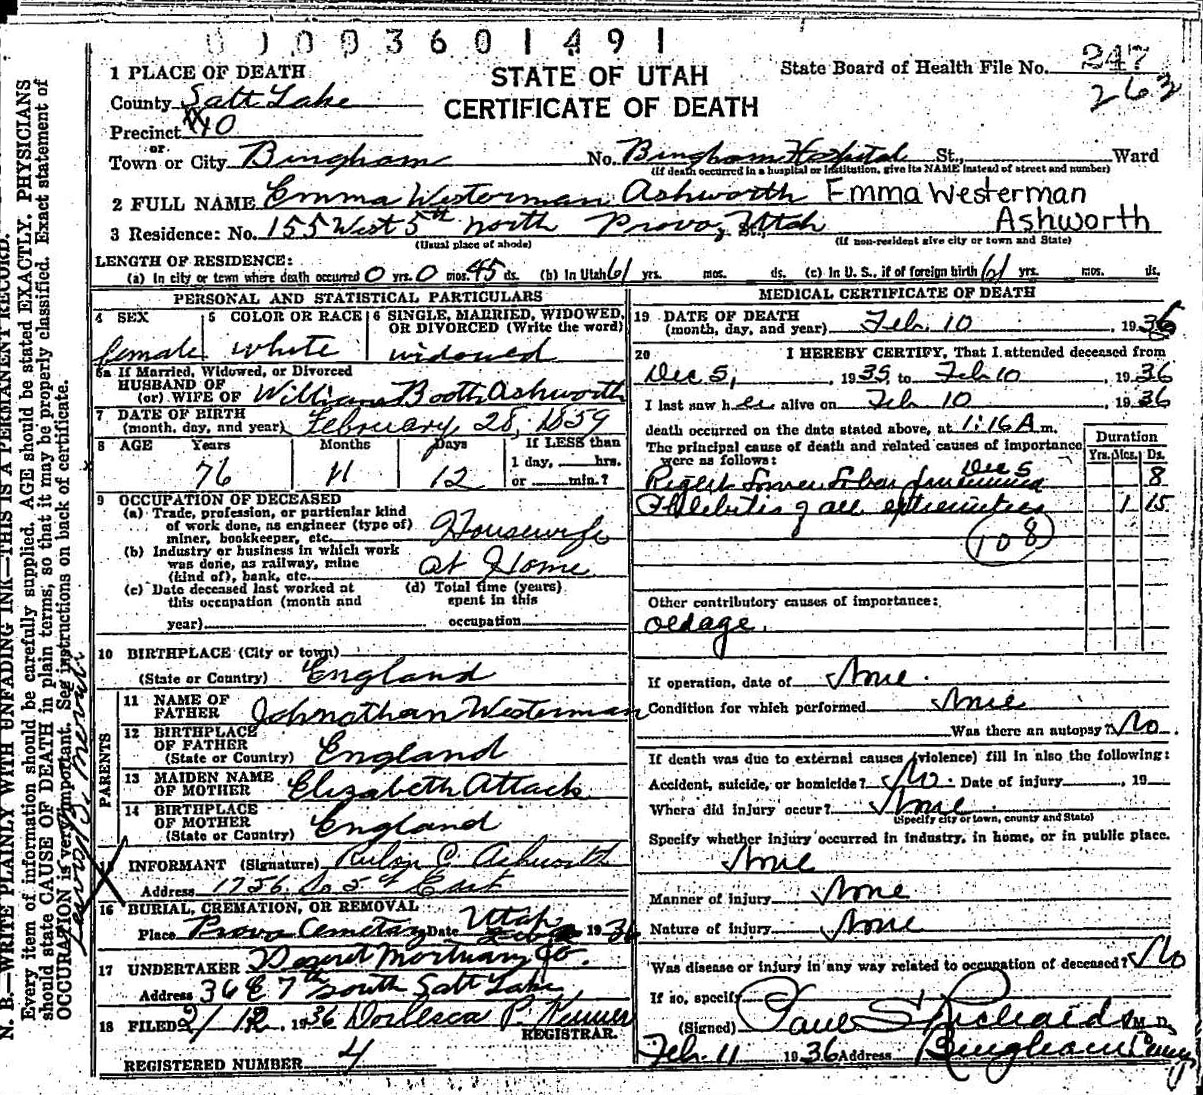 0 1 0 0 3 6 0 1 4 9 1
STATE OF UTAH
CERTIFICATE OF DEATH
State Board of Health File No. 247
263
1 PLACE OF DEATH
County Salt Lake
Precinct 40
or
Town or City Bingham No. Bingham Hospital St., Ward
(If death occurred in a hospital or institution, give its NAME instead of street and number)
2 FULL NAME Emma Westerman Ashworth Emma Westerman Ashworth
3 Residence: No. 155 West 5th North Provo, St., Utah
(Usual place of abode) (If non-resident give city or town and State)
LENGTH OF RESIDENCE:
(a) In city or town where death occurred 0 yrs. 0 mos. 45 ds. (b) In Utah 61 yrs. mos. ds. (c) In U. S., if of foreign birth 61 yrs. mos. ds.
PERSONAL AND STATISTICAL PARTICULARS
4 SEX
female
5 COLOR OR RACE
white
6 SINGLE, MARRIED, WIDOWED, OR DIVORCED (Write the word)
widowed
6a If Married, Widowed, or Divorced
HUSBAND OF
(or) WIFE OF William Booth Ashworth
7 DATE OF BIRTH
(month, day, and year) February 28, 1859
8 AGE Years Months Days If LESS than
76 11 12 1 day, hrs.
or min.?
9 OCCUPATION OF DECEASED
(a) Trade, profession, or particular kind
of work done, as engineer (type of)
miner, bookkeeper, etc. Housewife
(b) Industry or business in which work
was done, as railway, mine
(kind of), bank, etc. at Home
(c) Date deceased last worked at
this occupation (month and
year)
(d) Total time (years)
spent in this
occupation
10 BIRTHPLACE (City or town)
(State or Country) England
PARENTS
11 NAME OF
FATHER Johnathan Westerman
12 BIRTHPLACE
OF FATHER
(State or Country) England
13 MAIDEN NAME
OF MOTHER Elizabeth Attack
14 BIRTHPLACE
OF MOTHER
(State or Country) England
INFORMANT (Signature) Rulon C. Ashworth
Address 1756 So 5th East
16 BURIAL, CREMATION, OR REMOVAL
Place Provo Cemetary Utah Date 1936
17 UNDERTAKER Deseret Mortuary Co.
Address 36 E 7th South Salt Lake
18 FILED 2/12, 1936
REGISTRAR.
REGISTERED NUMBER 4
MEDICAL CERTIFICATE OF DEATH
19 DATE OF DEATH
(month, day, and year) Feb. 10, 1936
20 I HEREBY CERTIFY, That I attended deceased from
Dec 5, 1935, to Feb 10, 1936
I last saw her alive on Feb 10, 1936
death occurred on the date stated above, at 1:16 A.m.
The principal cause of death and related causes of importance
were as follows:
Duration
Yrs. Mos. Ds.
Dec 5
Rigert Lower Lobar Pneumonia 8
Phlebitis of all extremities 1 15
108
Other contributory causes of importance:
oldage.
If operation, date of None.
Condition for which performed None
Was there an autopsy? No.
If death was due to external causes (violence) fill in also the following:
Accident, suicide, or homicide? No. Date of injury , 19
Where did injury occur? None
(Specify city or town, county and State)
Specify whether injury occurred in industry, in home, or in public place.
None
Manner of injury None
Nature of injury None
Was disease or injury in any way related to occupation of deceased? No
If so, specify
(Signed) Paul S. Richards M. D.
Feb. 11 1936 Address Bingham Canyon
N. B.—WRITE PLAINLY WITH UNFADING INK—THIS IS A PERMANENT RECORD.
Every item of information should be carefully supplied. AGE should be stated EXACTLY. PHYSICIANS
should state CAUSE OF DEATH in plain terms, so that it may be properly classified. Exact statement of
OCCUPATION is very important. See instructions on back of certificate.